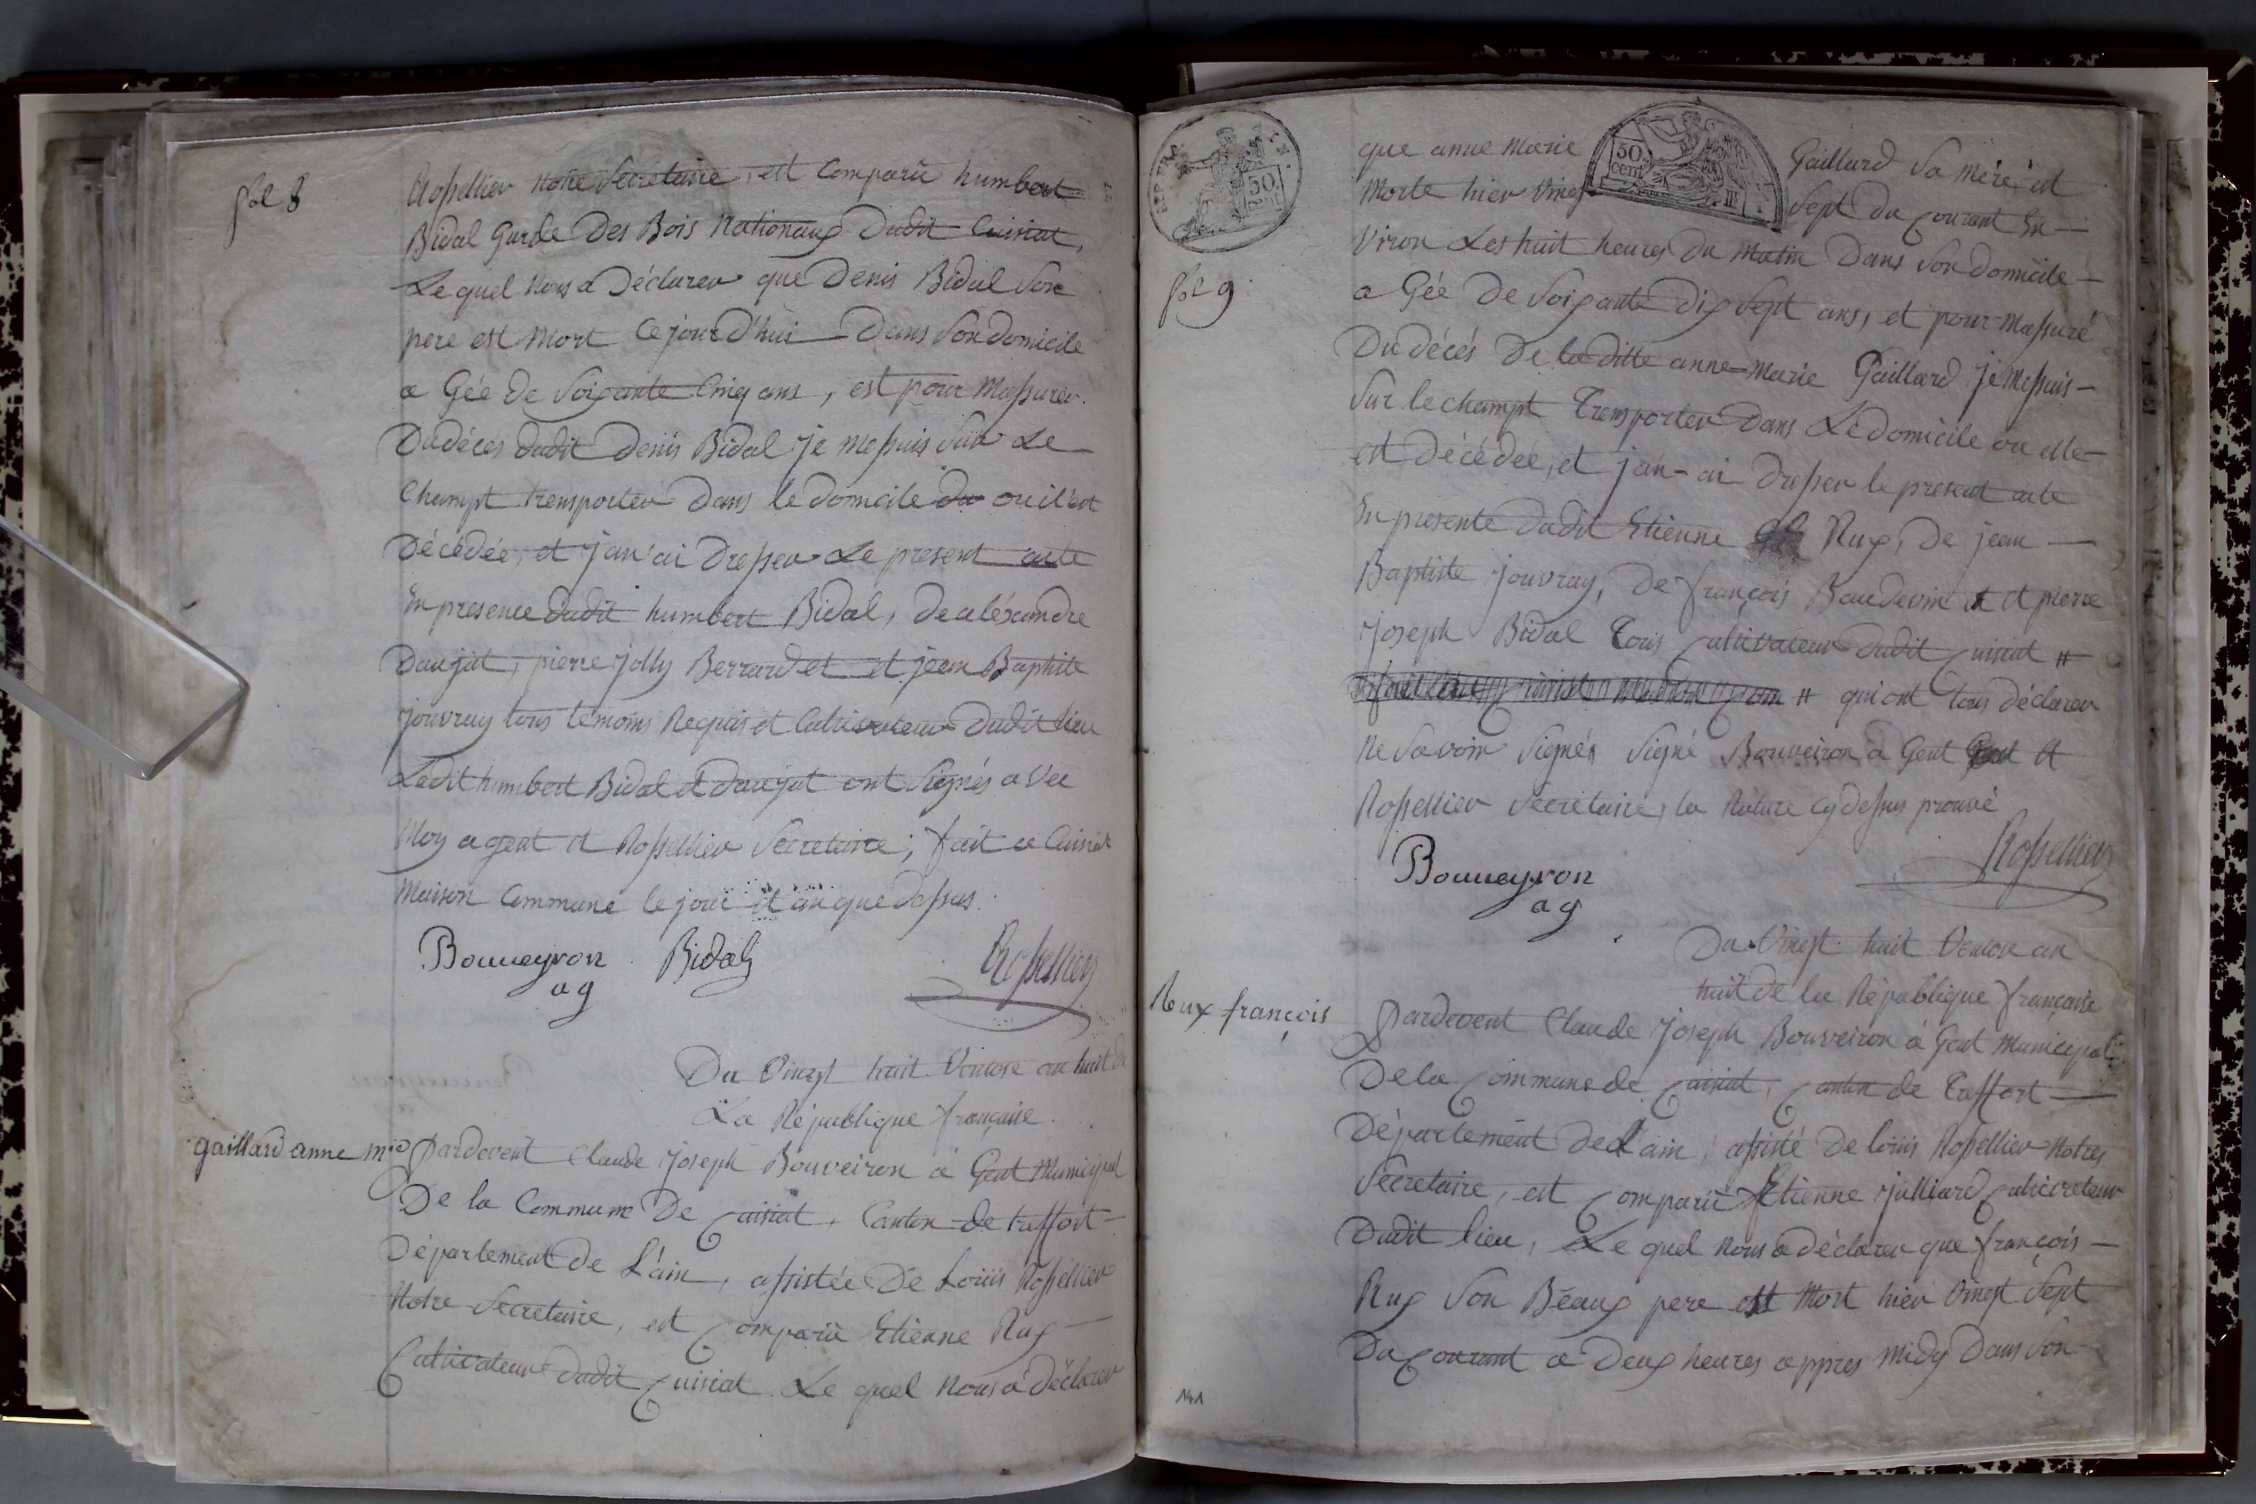 fol 8
Rossellier notre Secretaire, est comparû humbert
Bidal Garde Des Bois Nationaux Dudit Cuisiat,
Le quel Nous a Déclarer que Denis Bidal Son
pere est Mort Cejourd'hui Dans Son domicile
a Gée de Soixante Cinq ans, est pour Massurer
Dudéces dudit Denis Bidal je messuis Sur Le
Champt transporter Dans le domicile du ou il est
Décédée, et j'an'ai Dresser Le present acte
En presence dudit humbert Bidal, de aléxandre
Daujat, pierre Jolly Berrardet et jean Baptiste
jouvray tous témoins Requis et Cultivateur Dudit lieu
Ledit humbert Bidal et daujat ont Signés a Vec
Moy agent et Rossellier Secretaire; fait a Cuisiat
Maison Commune le jour et an que dessus.
Bouueyron Bidal Rossellier
ag
Du Vingt huit Ventose an huit de
La République française.
gaillard anne mie
Pardevent Claude Joseph Bouveiron a Gent Municipal
De la Commune De Cuisiat, Canton de treffort
Département de L'ain, assistée De Louis Rossellier
Notre Secretaire, est Comparû Etienne Rux
Cultivateur dudit Cuisiat. Le quel Nous a déclarer
50 cent
que anne Marie Gaillard Sa mere est
50 cent
Morte hier Vingt Sept du Courant En
Viron Les huit heures du Matin Dans Son domicile
fol 9
a Gée De Soixante dix Sept ans, et pour Massuré
Du décés De la ditte anne-Marie Gaillard je Messuis
Sur le champt Transporter Dans Le domicile ou elle
est Décédée, et j'an-ai Dresser le present acte
En presente dudit Etienne Rux, De jean
Baptiste jouvray, De françois Baudevin et pierre
Joseph Bidal Tous Cultivateur dudit Cuisiat #
# qui ont tous déclarer
Ne Savoir Signés Signé Bouveiron a Gent et
Rossellier Secretaire, la Rature cy dessus prouvé
Rossellier
Bouueyron
ag
Du Vingt huit Ventose an
huit de la République française
Rux françois
Pardevent Claude Joseph Bouveiron a Gent Municipal
De la Commune de Cuisiat, Canton de Treffort
Département de L'ain, assisté De louis Rossellier Notres
Secretaire, est Comparû Etienne Julliard Cultivateur
Dudit lieu, Le quel Nous a déclarer que françois
Rux Son Béaux pere est Mort hier Vingt Sept
Du Courant a Deux heures appres Midy Dans Son
141